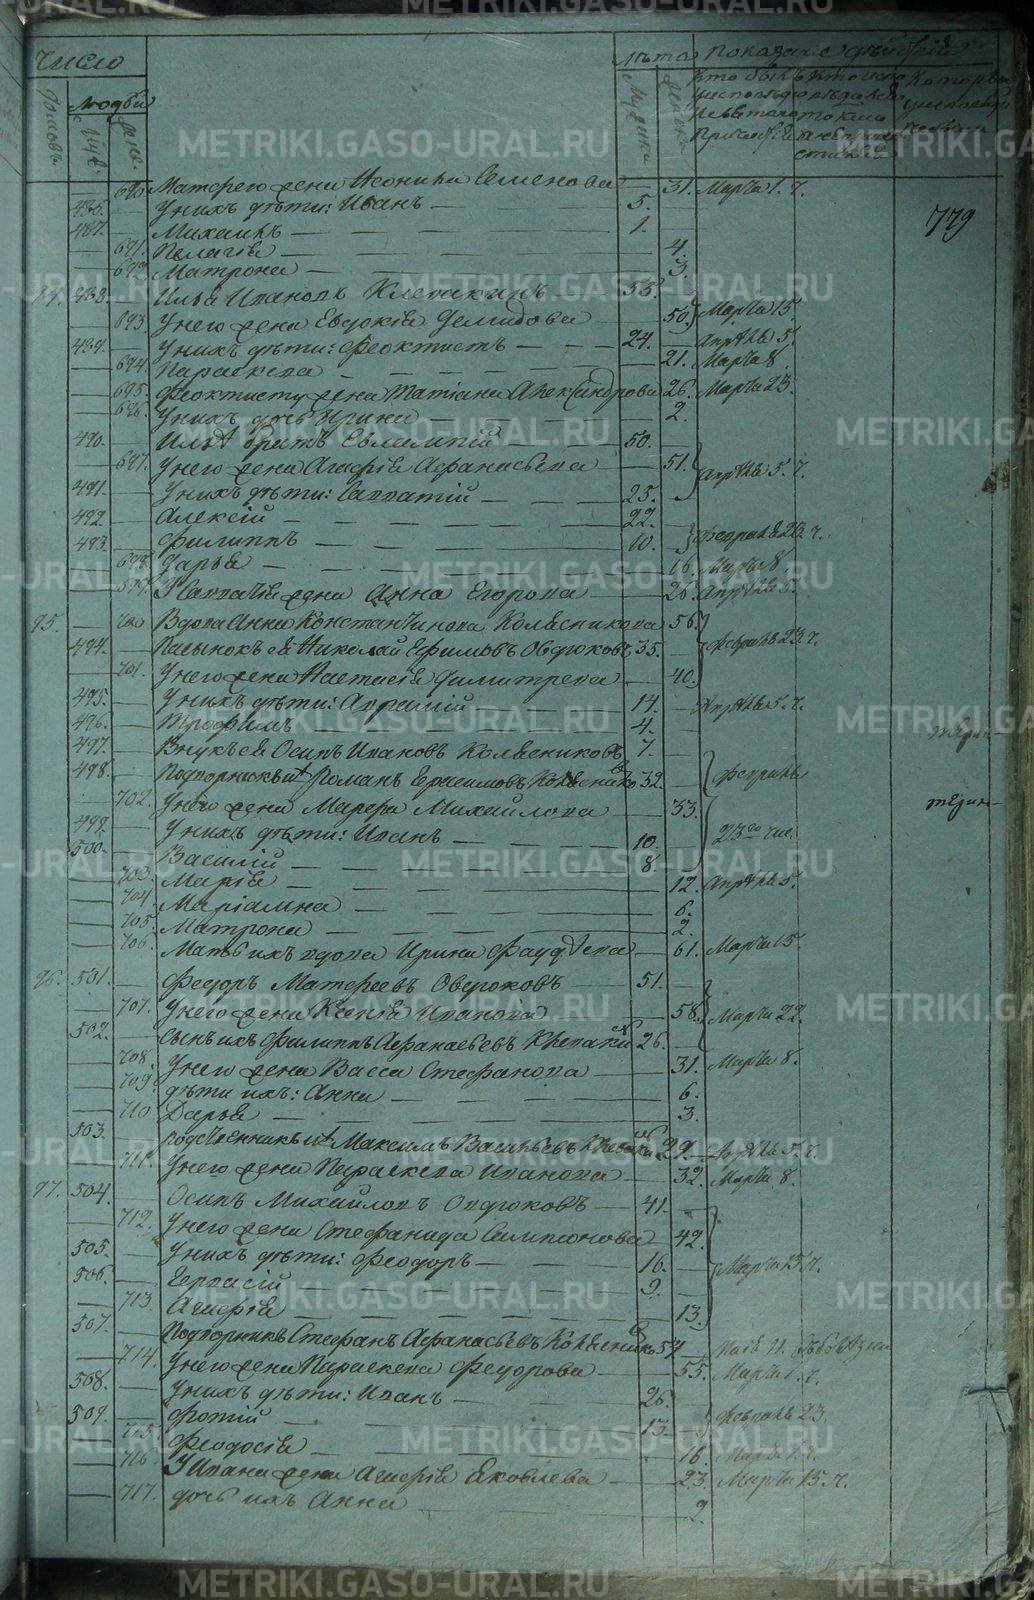 Число
Лѣта
Показаніе дѣйствія
Домовъ.
Людей
Муж.
Жен.
Мужска
Женска
Кто былъ
у исповѣди
и Св. таинъ
Кто
Которые
690. Матфею жена Леонила Семенова — 31. Марта 1. ч.
486. У нихъ дѣти: Иванъ — 5.
779
487. Михаилъ — 1.
691. Пелагія — 4.
692. Матрона — 3.
94. 488. Илья Ивановъ Клепакинъ — 53.
693. У него жена Евдокія Демидова — 50. Марта 15
489. У нихъ дѣти: Феоктистъ — 24. Апрѣля 5.
694. Параскева — 21. Марта 8.
695. Феоктисту жена Татіана Александрова 26. Марта 23.
696. У нихъ дочь Ирина — 2.
490. Ильѣ братъ Евлампій — 50.
697. У него жена Агафія Афанасьева — 51. Апрѣля 5. ч.
491. У нихъ дѣти: Савватій — 25.
492. Алексій — 22.
493. Филиппъ — 10. Февраля 23. ч.
698. Дарья — 16. Марта 8.
699. У Савватія жена Анна Егорова — 26. Апрѣля 5.
95. 700 Вдова Анна Константинова Колѣсникова 56.
494. Пасынокъ ея Николай Ефимовъ Овдоковъ 35. Февраля 23. ч.
701. У него жена Настасія Димитрева — 40.
495. У нихъ дѣти: Авраамій — 14. Апрѣля 5. ч.
496. Трофимъ — 4.
497. Внукъ ея Осипъ Ивановъ Колѣсниковъ 7.
498. Подворникъ Романъ Герасимовъ Колѣснико 32. Февраля
702. У него жена Марфа Михайлова — 33.
499. У нихъ дѣти: Иванъ — 10. 23го чис.
500. Василій — 8.
703. Марія — 12. Апрѣля 5.
704. Маріамна — 6.
705. Матрона — 2.
706. Мать ихъ вдова Ирина Фаддѣева — 61. Марта 15
96. 501. Федоръ Матфеевъ Овдоковъ — 51.
707. У него жена Ксенія Иванова — 58. Марта 22.
502. Сынъ ихъ Филиппъ Афанасьевъ Клепаки 26.
708. У него жена Васса Стефанова — 31. Марта 8.
709. Дѣти ихъ: Анна — 6.
710 Дарья — 3.
503. Максимъ Васильевъ 29. Апрѣль 5. ч.
711. У него жена Параскева Иванова — 32. Марта 8.
97. 504. Осипъ Михайловъ Овдоковъ — 41.
712. У него жена Стефанида Сампсонова — 42.
505. У нихъ дѣти: Феодоръ — 16. Марта 15. ч.
506. Гервасій — 9.
713. Агафія — 13.
507. Подворникъ Стефанъ Афанасьевъ Колѣснико 57
714. У него жена Параскева Федорова — 55. Марта 1. ч.
508. У нихъ дѣти: Иванъ — 26.
509. Фотій — 13. Февраля 23
715. Феодосія — 16. Марта 1. ч.
716. У Ивана жена Агафія Яковлева — 23. Марта 15. ч.
717. Дочь ихъ Анна 2.
METRIKI.GASO-URAL.RU